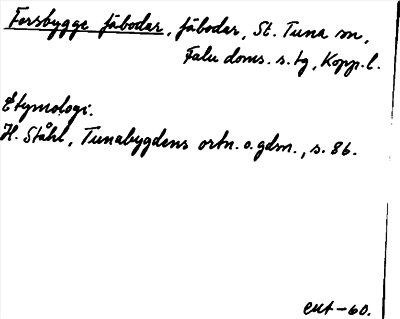 Forsbygge fäbodar, fäbodar, St. Tuna sn,
Falu doms. s. tg, Kopp. l.
Etymologi.
H. Ståhl, Tunabygdens ortn. o. gdsn., s. 86.
-60.